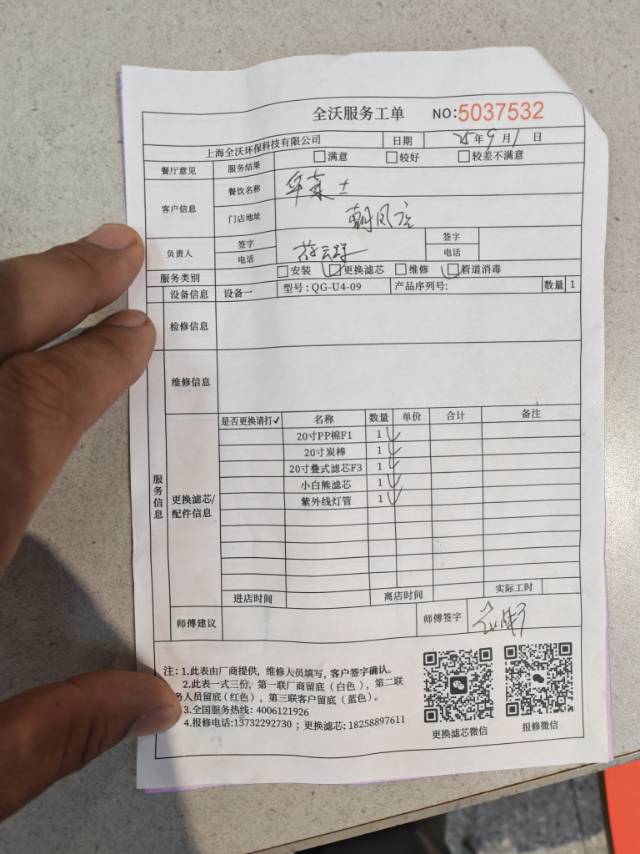 全沃服务工单 NO:5037532
上海全沃环保科技有限公司 日期 25年9月1日
餐厅意见 服务结果 □满意 □较好 □较差不满意
客户信息 餐饮名称 华莱士
门店地址
负责人 签字 签字
电话 电话
服务类别 □安装 □更换滤芯 □维修 □管道消毒
设备信息 设备一 型号:QG-U4-09 产品序列号: 数量 1
检修信息
维修信息
服务信息
更换滤芯/配件信息
是否更换请打✓ 名称 数量 单价 合计 备注
20寸PP棉F1 1 ✓
20寸炭棒 1 ✓
20寸叠式滤芯F3 1 ✓
小白熊滤芯 1 ✓
紫外线灯管 1 ✓
进店时间 离店时间 实际工时
师傅建议 师傅签字
注: 1.此表由厂商提供，维修人员填写，客户签字确认。
2.此表一式三份，第一联厂商留底（白色），第二联
务人员留底(红色)，第三联客户留底（蓝色）。
3.全国服务热线: 4006121926
4.报修电话:13732292730 ; 更换滤芯: 18258897611
更换滤芯微信 报修微信